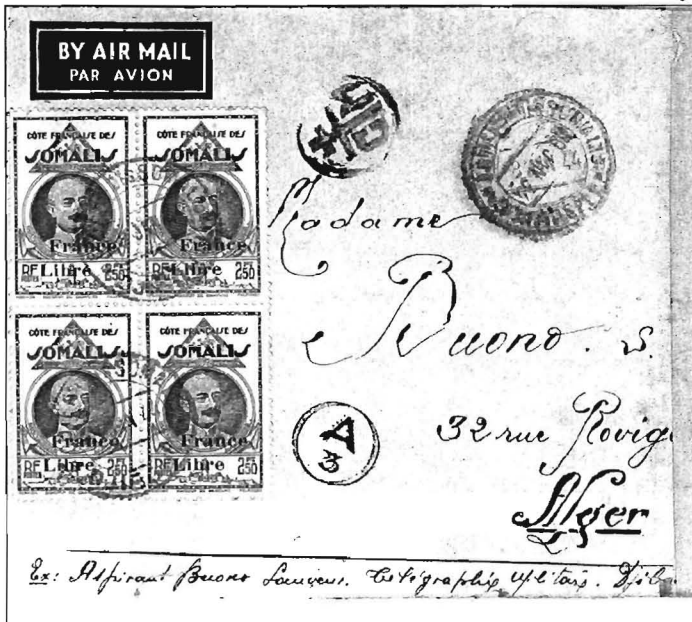 BY AIR MAIL
PAR AVION
CÔTE FRANÇAISE DES
SOMALIS
France
RF Libre 250
CÔTE FRANÇAISE DES
SOMALIS
France
RF Libre 250
CÔTE FRANÇAISE DES
SOMALIS
France
RF Libre 250
CÔTE FRANÇAISE DES
SOMALIS
France
RF Libre 250
Madame
Buono. S.
A
3
32 rue Rovig
Alger
Ex: Aspirant Buono Télégraphie Militaire. Djib